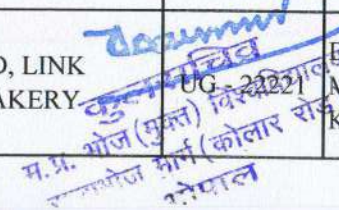 D, LINK
AKERY
UG - 22221
E
M
K
कुलसचिव
म.प्र. भोज (मुक्त) विश्वविद्यालय
मार्ग (कोलार रोड
भोपाल